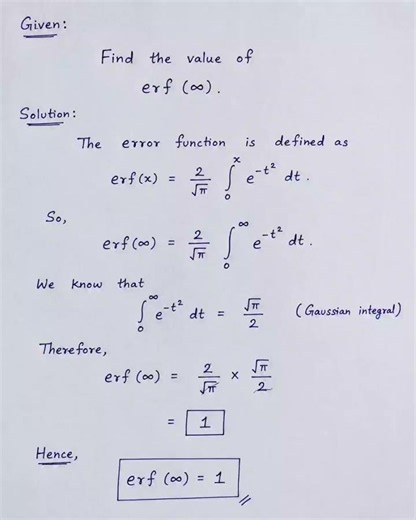 Given:
Find the value of
erf (∞).
Solution:
The error function is defined as
erf(x) = 2/√π ∫₀ˣ e^(-t²) dt.
So,
erf(∞) = 2/√π ∫₀^∞ e^(-t²) dt.
We know that
∫₀^∞ e^(-t²) dt = √π/2 (Gaussian integral)
Therefore,
erf(∞) = 2/√π × √π/2
= 1
Hence,
erf(∞) = 1